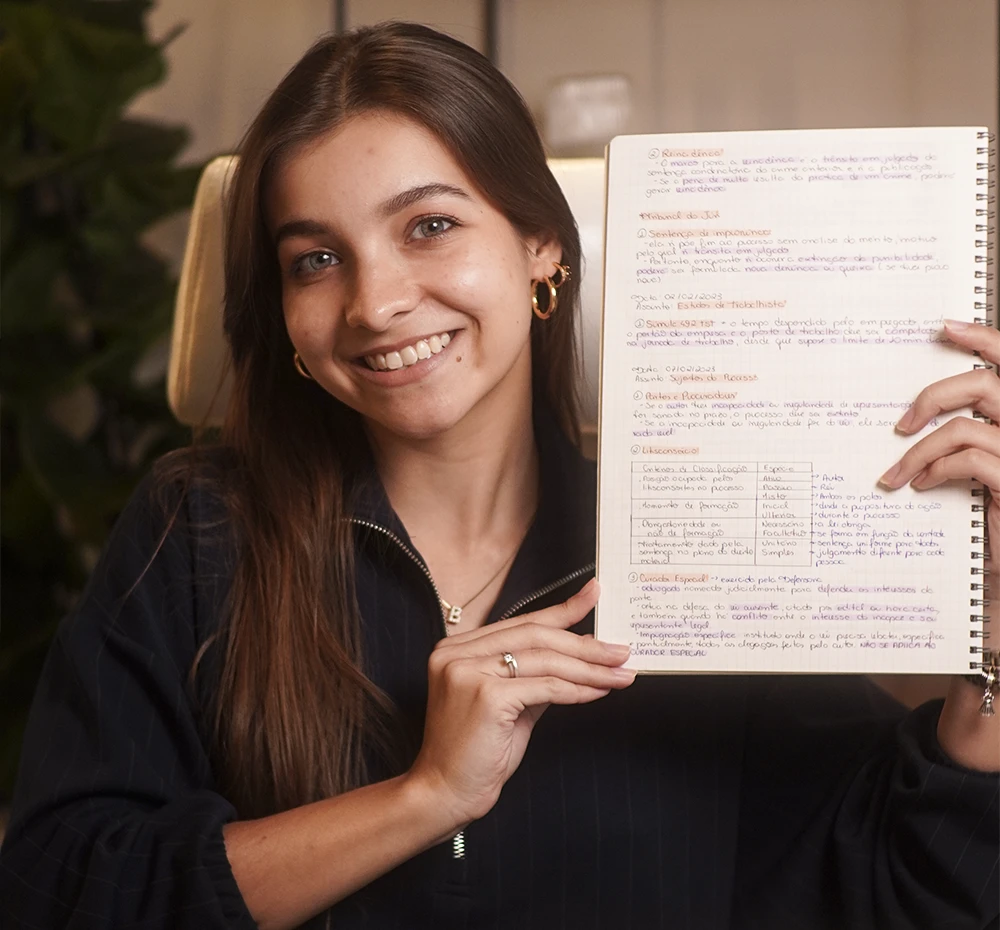 ② Reincidência
- O marco para a reincidência é o trânsito em julgado da
sentença condenatória do crime anterior e não a publicação
- Se a pena de multa resulta da prática de um crime, poderá
gerar reincidência
Tribunal do Júri
① Sentença de impronúncia
- ela não põe fim ao processo sem análise do mérito, motivo
pelo qual não transita em julgado
- Portanto, enquanto não ocorrer extinção da punibilidade,
poderá ser formulada nova denúncia ou queixa (se tiver prova
nova)
Data: 02/02/2023
Assunto: Estudos de Trabalhista
① Súmula 492 TST → o tempo despendido pelo empregado entre
a portaria da empresa e o posto de trabalho deve ser
na jornada de trabalho, desde que supere o limite de 10 min
Data: 07/02/2023
Assunto: Sujeitos do Processo
① Partes e Procuradores
- Se o autor tiver incapacidade ou irregularidade de representação
for sanado no prazo, o processo deve ser extinto
- Se a incapacidade ou irregularidade for do réu ele será
revel
② Litisconsórcio
Critérios de Classificação Espécie
Posição ocupada pelos Ativo → Autor
litisconsortes no processo Passivo → Réu
Misto → Ambos os polos
Momento de formação Inicial → desde a propositura da ação
Ulterior → durante o processo
Obrigatoriedade ou Necessário → a lei obriga
não de formação Facultativo → se forma em função da vontade
Tratamento dado pela Unitário → sentença uniforme para todos
sentença no plano do direito Simples → julgamento diferente para cada
material pessoa
③ Curador Especial → exercido pela Defensoria
- advogado nomeado judicialmente para defender os interesses da
parte
- Atua na defesa do réu ausente, citado por edital ou hora certa,
e também quando há conflito entre o interesse do incapaz e seu
representante legal
- Impugnação específica instituto onde o réu precisa rebater, específica
e pontualmente, todas as alegações feitas pelo autor. NÃO SE APLICA AO
CURADOR ESPECIAL
B